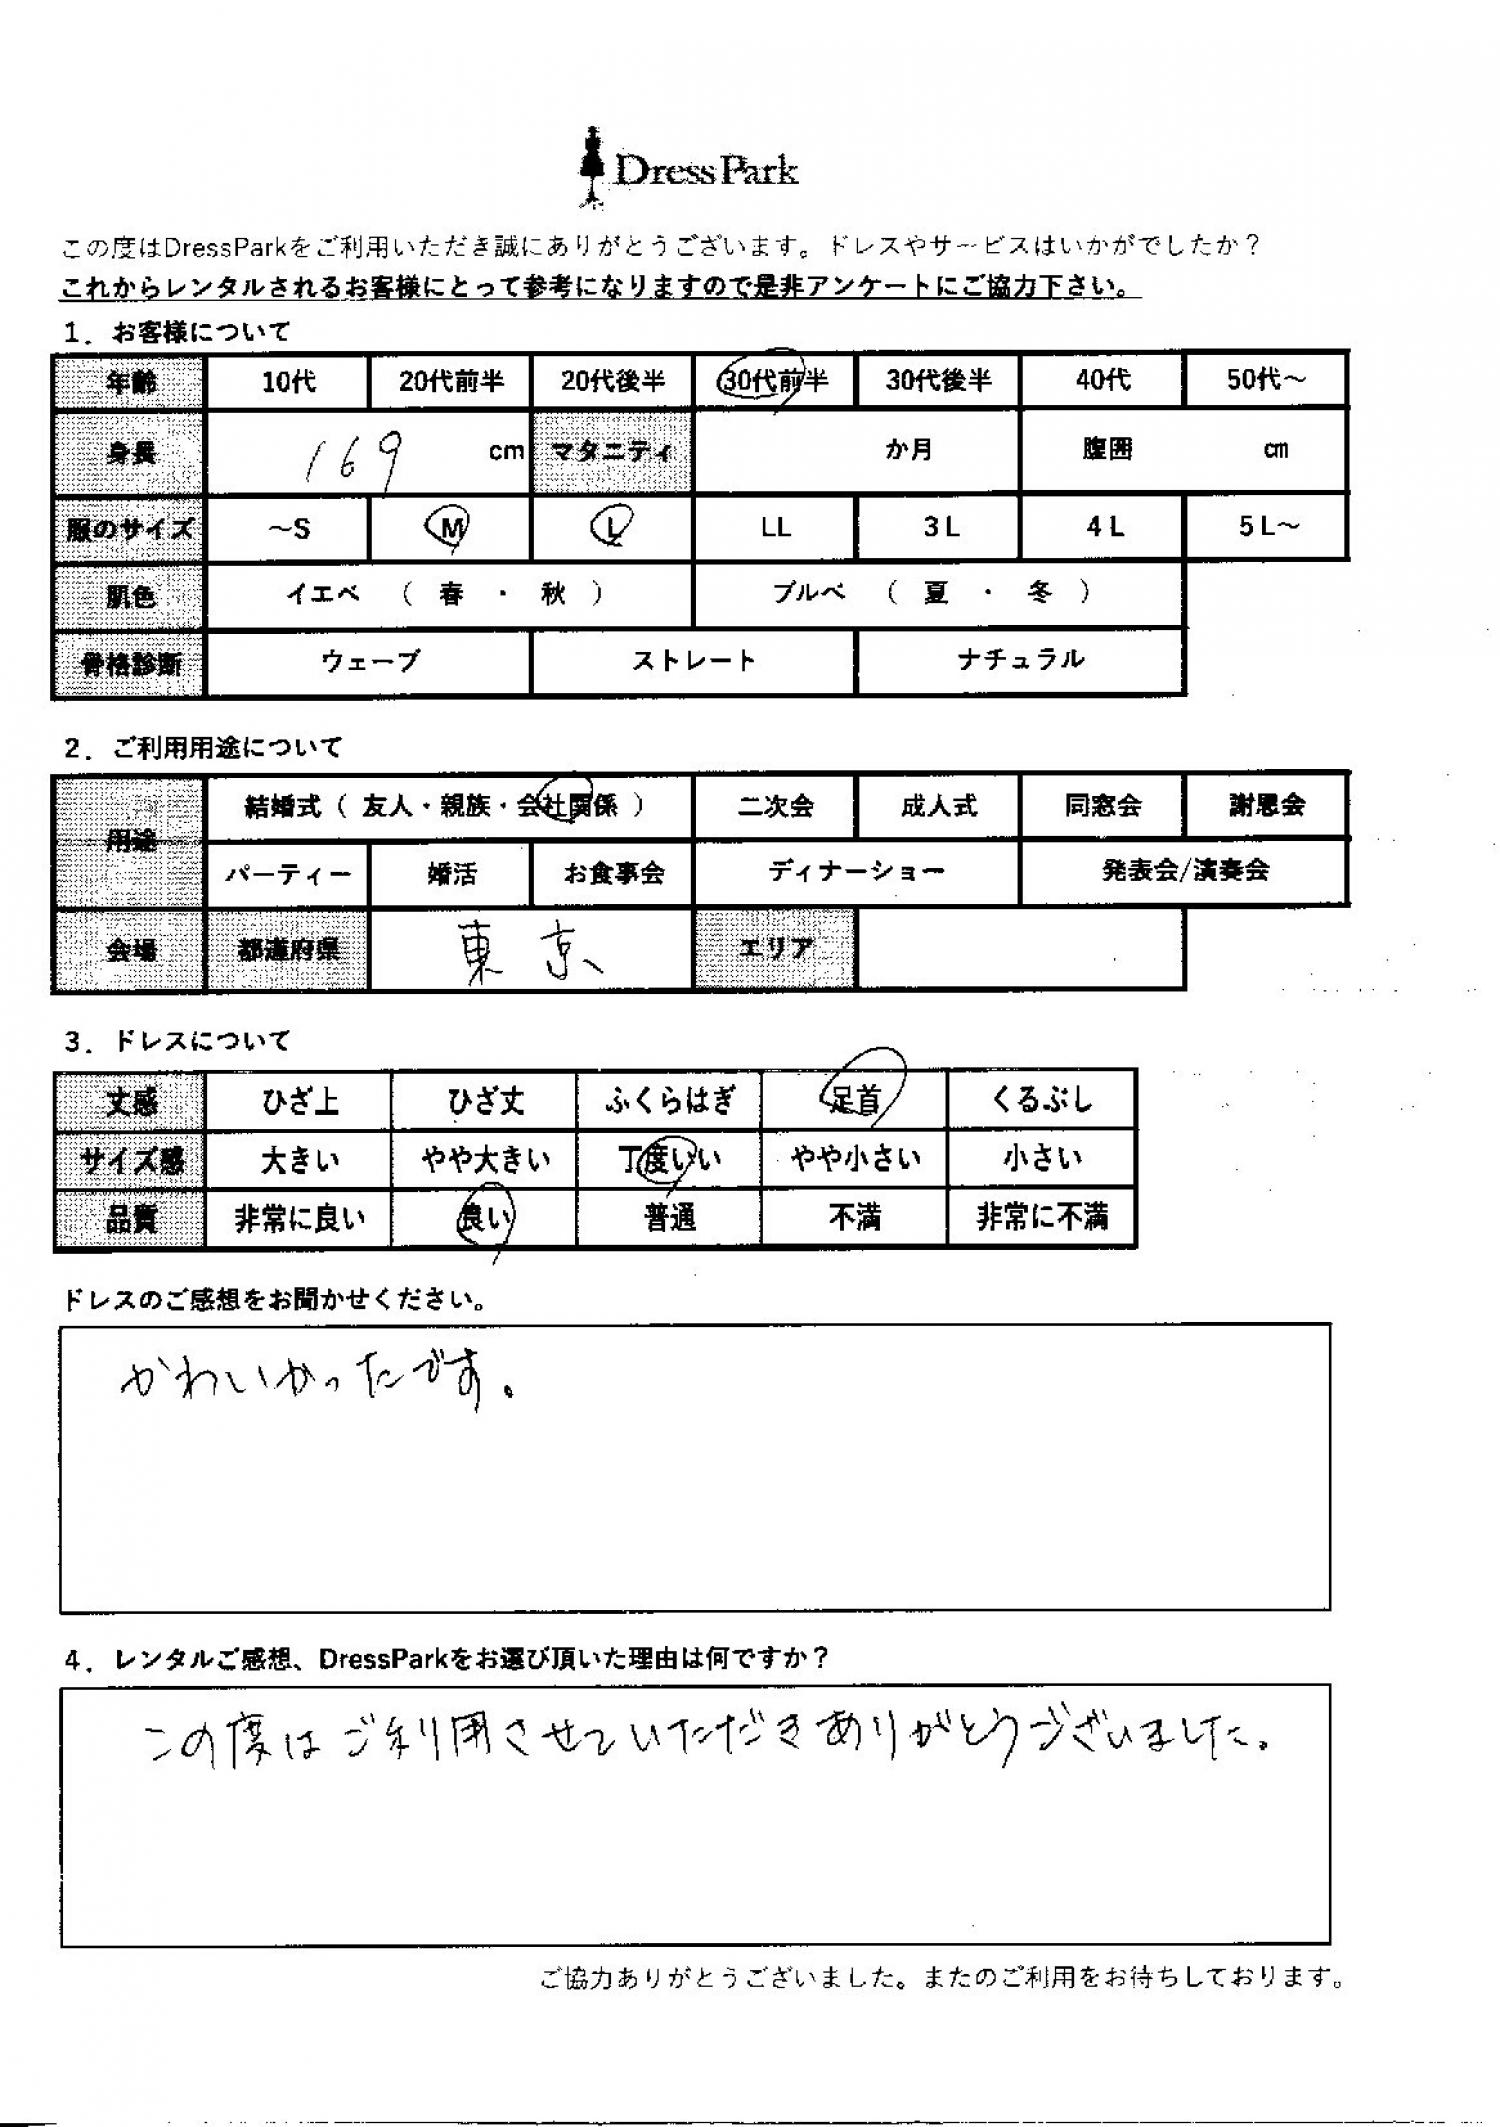 DressPark
この度はDressParkをご利用いただき誠にありがとうございます。ドレスやサービスはいかがでしたか？
これからレンタルされるお客様にとって参考になりますので是非アンケートにご協力下さい。
1．お客様について
年齢 10代 20代前半 20代後半 30代前半 30代後半 40代 50代～
身長 169 cm マタニティ か月 腹囲 cm
服のサイズ ～S M L LL 3L 4L 5L～
肌色 イエベ （ 春 ・ 秋 ） ブルベ （ 夏 ・ 冬 ）
骨格診断 ウェーブ ストレート ナチュラル
2．ご利用用途について
用途 結婚式（ 友人・親族・会社関係 ） 二次会 成人式 同窓会 謝恩会
パーティー 婚活 お食事会 ディナーショー 発表会/演奏会
会場 都道府県 東京 エリア
3．ドレスについて
丈感 ひざ上 ひざ丈 ふくらはぎ 足首 くるぶし
サイズ感 大きい やや大きい 丁度いい やや小さい 小さい
品質 非常に良い 良い 普通 不満 非常に不満
ドレスのご感想をお聞かせください。
かわいかったです。
4．レンタルご感想、DressParkをお選び頂いた理由は何ですか？
この度はご利用させていただきありがとうございました。
ご協力ありがとうございました。またのご利用をお待ちしております。